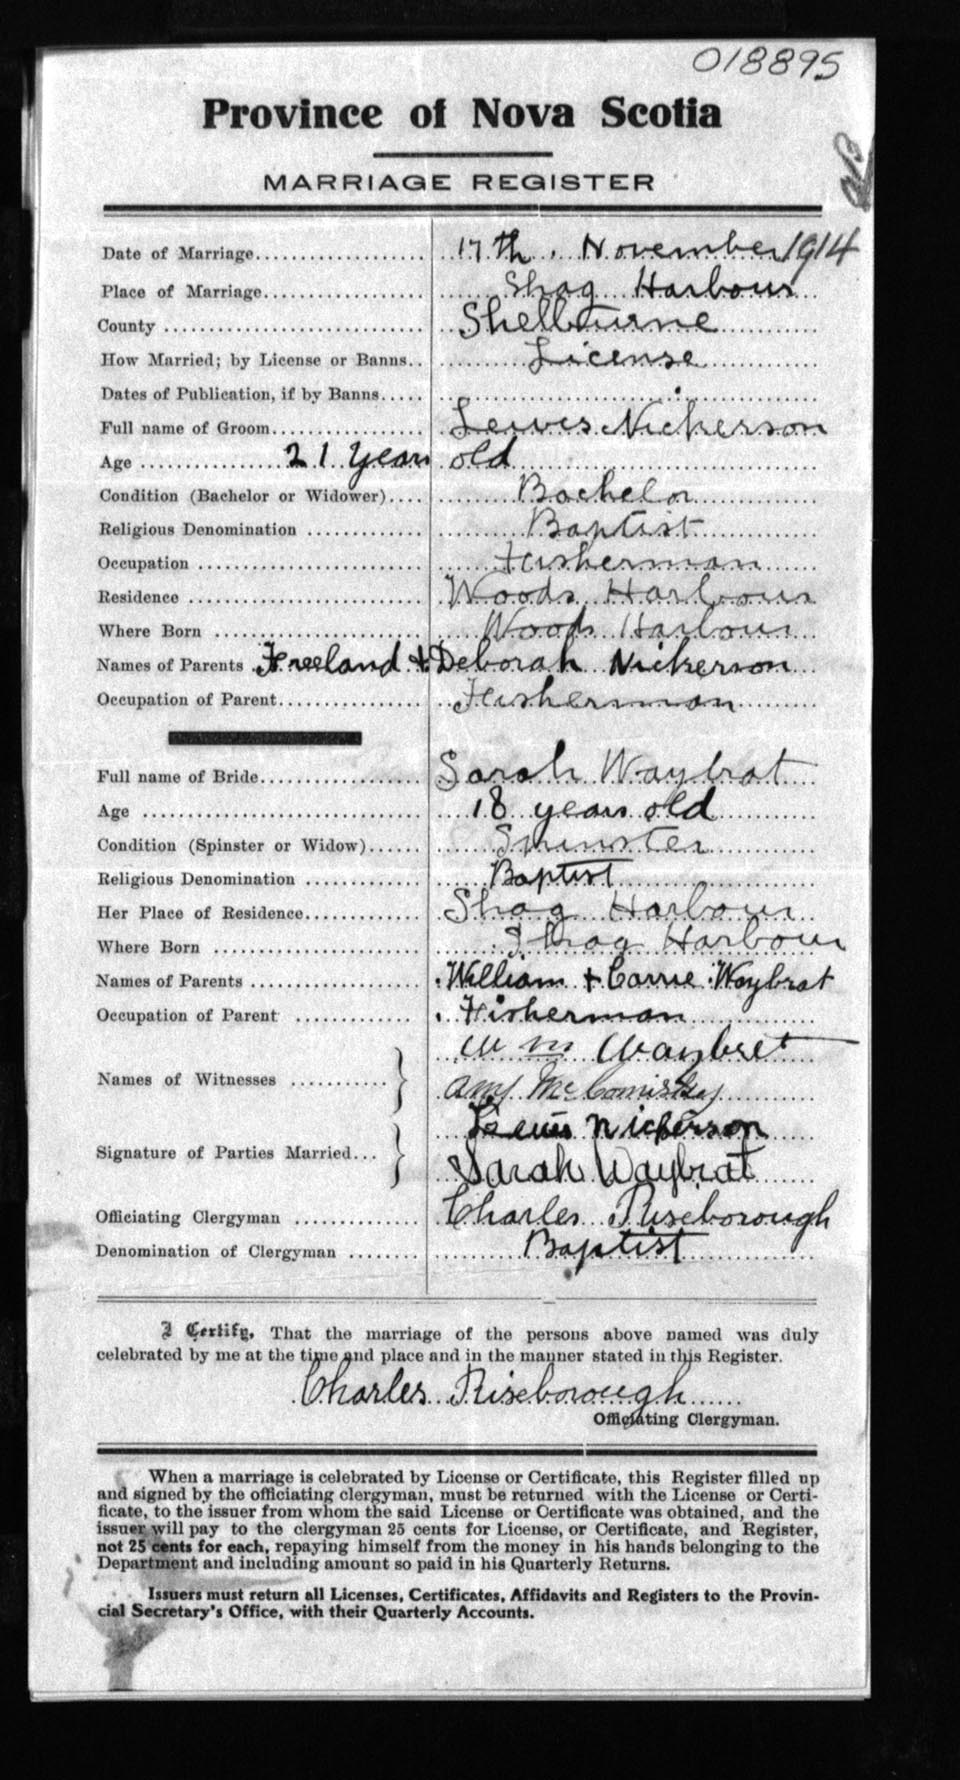 018895
Province of Nova Scotia
MARRIAGE REGISTER
Date of Marriage 17th. November 1914
Place of Marriage Shag Harbour
County Shelburne
How Married; by License or Banns License
Dates of Publication, if by Banns
Full name of Groom Lewis Nickerson
Age 21 years old
Condition (Bachelor or Widower) Bachelor
Religious Denomination Baptist
Occupation Fisherman
Residence Woods Harbour
Where Born Woods Harbour
Names of Parents Freeland + Deborah Nickerson
Occupation of Parent Fisherman
Full name of Bride Sarah Waybrat
Age 18 years old
Condition (Spinster or Widow) Spinster
Religious Denomination Baptist
Her Place of Residence Shag Harbour
Where Born Shag Harbour
Names of Parents William + Carrie Waybrat
Occupation of Parent Fisherman
Wm Waybret
Names of Witnesses
Amy McComiskey
Lewis Nickerson
Signature of Parties Married
Sarah Waybrat
Officiating Clergyman Charles Riseborough
Denomination of Clergyman Baptist
I Certify, That the marriage of the persons above named was duly
celebrated by me at the time and place and in the manner stated in this Register.
Charles Riseborough
Officiating Clergyman.
When a marriage is celebrated by License or Certificate, this Register filled up
and signed by the officiating clergyman, must be returned with the License or Certi-
ficate, to the issuer from whom the said License or Certificate was obtained, and the
issuer will pay to the clergyman 25 cents for License, or Certificate, and Register,
not 25 cents for each, repaying himself from the money in his hands belonging to the
Department and including amount so paid in his Quarterly Returns.
Issuers must return all Licenses, Certificates, Affidavits and Registers to the Provin-
cial Secretary's Office, with their Quarterly Accounts.